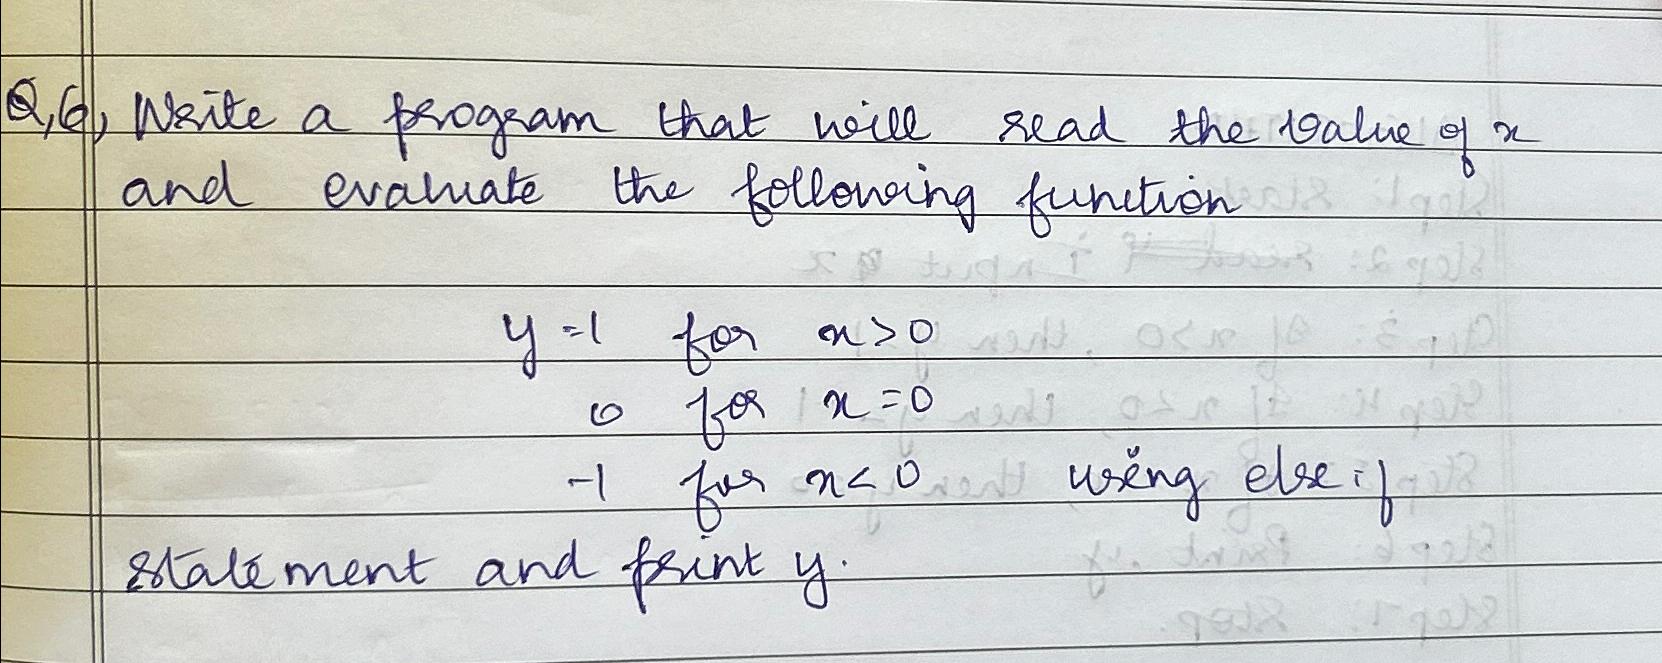 Q,6, Write a program that will read the value of x
and evaluate the following function
y = 1 for x > 0
0 for x = 0
-1 for x < 0 using else if
statement and print y.